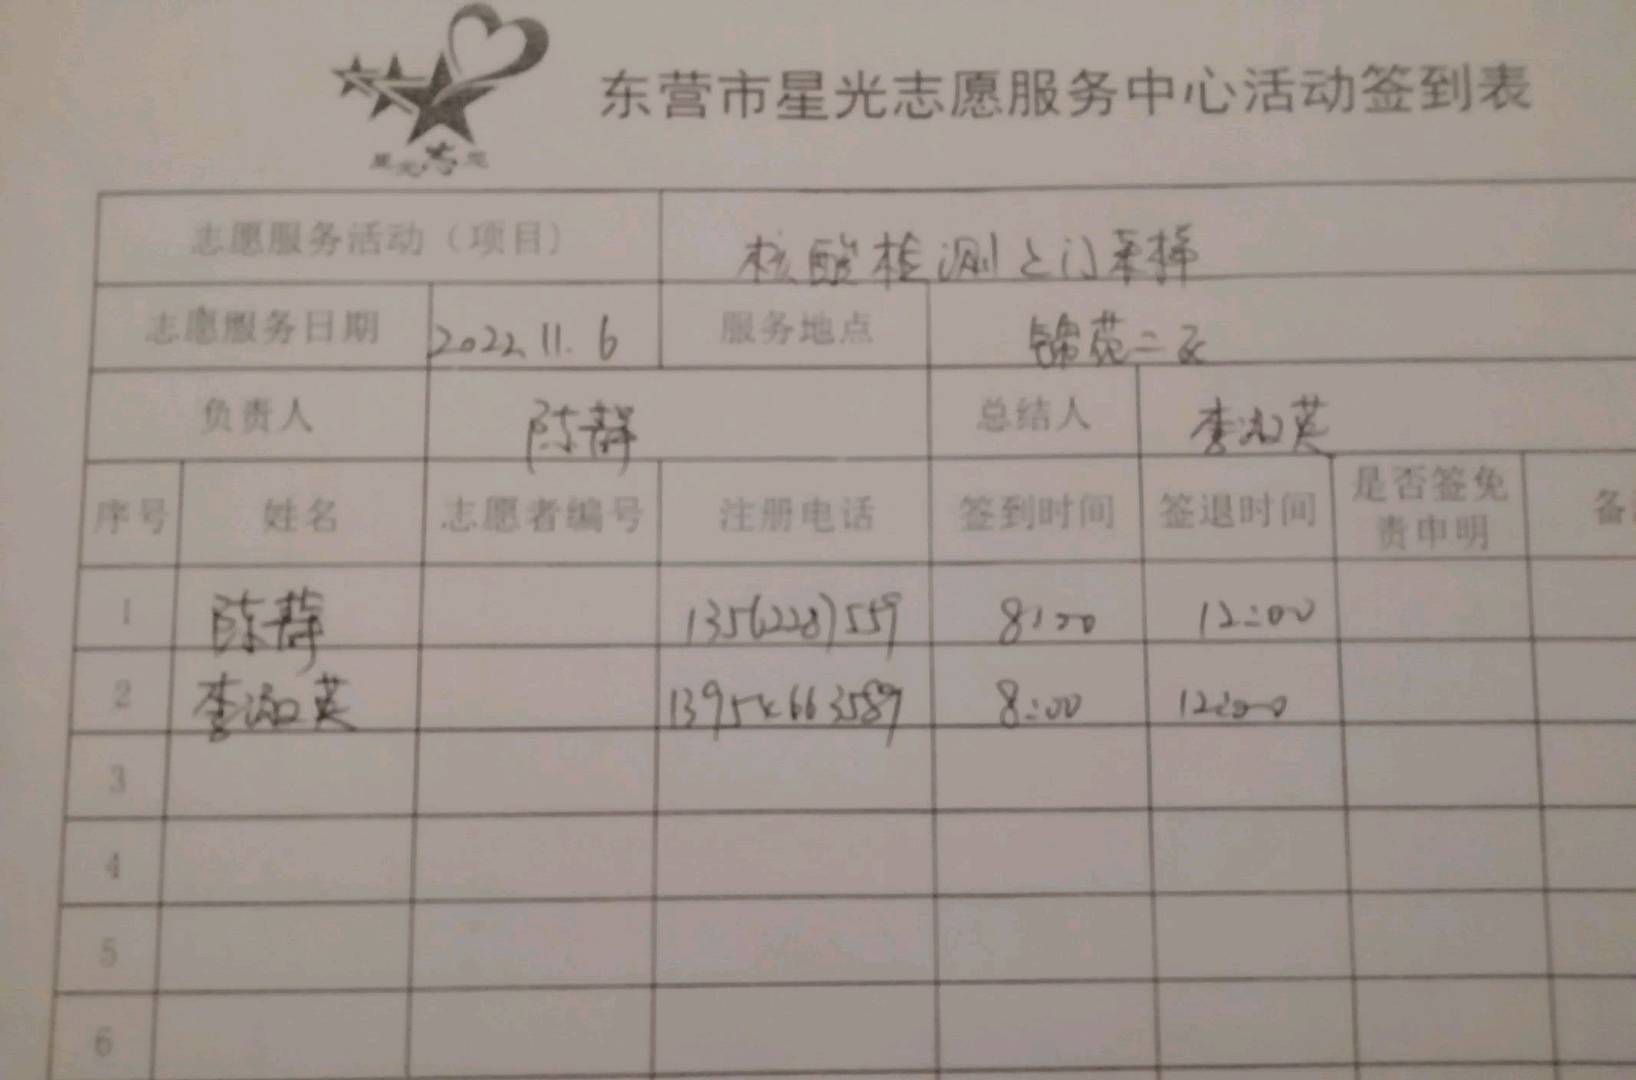 星光志愿
东营市星光志愿服务中心活动签到表
志愿服务活动（项目） 核酸检测上门采样
志愿服务日期 2022.11.6 服务地点 锦苑二区
负责人 陈静 总结人 李淑英
序号 姓名 志愿者编号 注册电话 签到时间 签退时间 是否签免责申明 备
1 陈静 13562287559 8:00 12:00
2 李淑英 13954663589 8:00 12:00
3
4
5
6